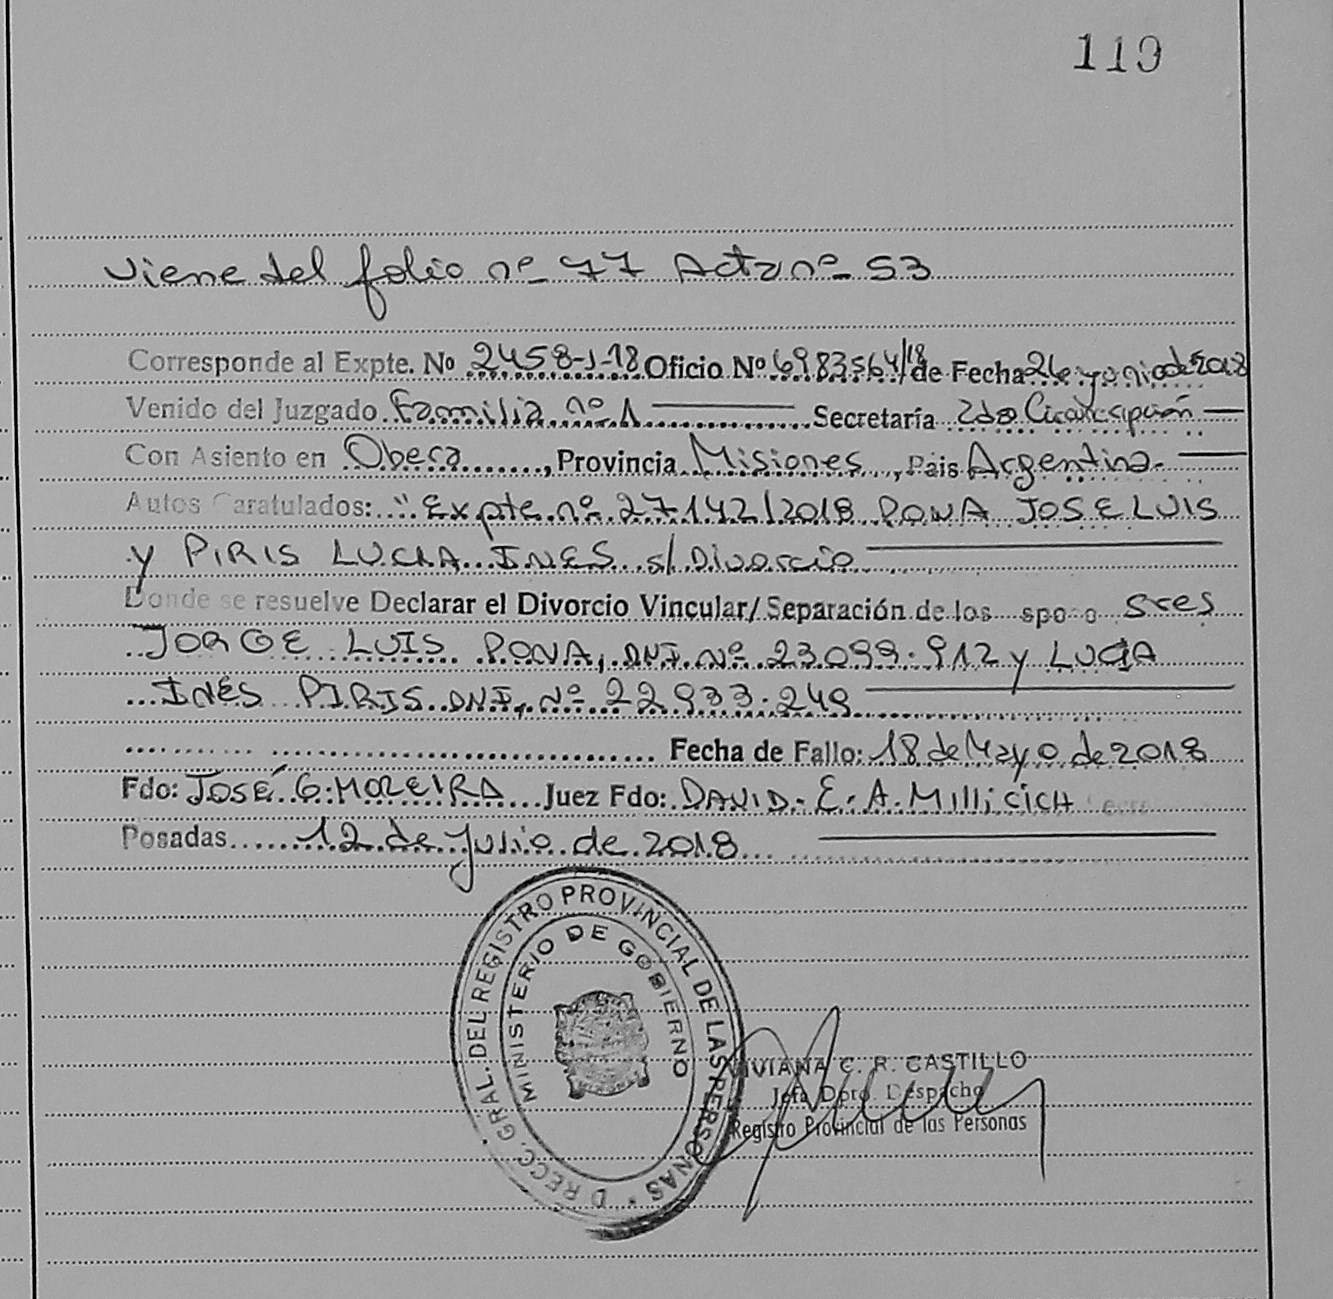 119
Viene del folio nº 77 Acta nº 53
Corresponde al Expte. No 2458-J-18 Oficio Nº 6983564/18 de Fecha 26 junio de 2018
Venido del Juzgado Familia nº 1 Secretaría 2da Circunscripción
Con Asiento en Obera, Provincia Misiones, Pais Argentina.
Autos Caratulados: "Expte nº 27142/2018 PONA JOSE LUIS
y PIRIS LUCIA INES s/ Divorcio
Donde se resuelve Declarar el Divorcio Vincular/Separación de los sposo Sres
JORGE LUIS PONA, DNI Nº 23.099.912 y LUCIA
INÉS PIRIS DNI, Nº 22.933.249
Fecha de Fallo: 18 de Mayo de 2018
Fdo: JOSÉ G. MOREIRA Juez Fdo: DAVID. E. A. MILLICICH Secre
Posadas 12 de Julio de 2018
DIRECC. GRAL. DEL REGISTRO PROVINCIAL DE LAS PERSONAS *
MINISTERIO DE GOBIERNO
VIVIANA C. R. CASTILLO
Jefa Dpto. Despacho
Registro Provincial de las Personas